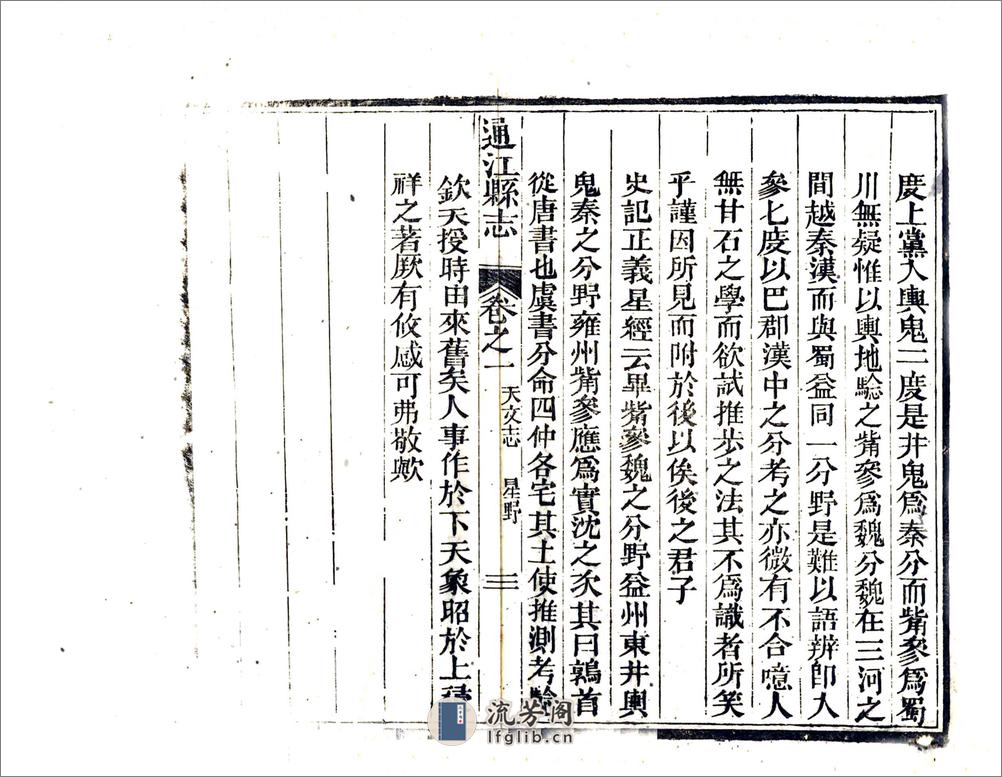 度上黨入輿鬼二度是井鬼爲秦分而觜參爲蜀
川無疑惟以輿地驗之觜參爲魏分魏在三河之
間越秦漢而與蜀益同一分野是難以語辨卽入
參七度以巴郡漢中之分考之亦微有不合噫人
無甘石之學而欲試推步之法其不爲識者所笑
乎謹因所見而附於後以俟後之君子
史記正義星經云畢觜參魏之分野益州東井輿
鬼秦之分野雍州觜參應爲實沈之次其曰鶉首
從唐書也虞書分命四仲各宅其土使推測考驗
通江縣志 卷之一 天文志 星野 三
欽天授時由來舊矣人事作於下天象昭於上
祥之著厥有攸感可弗敬歟
流芳阁
lfglib.cn